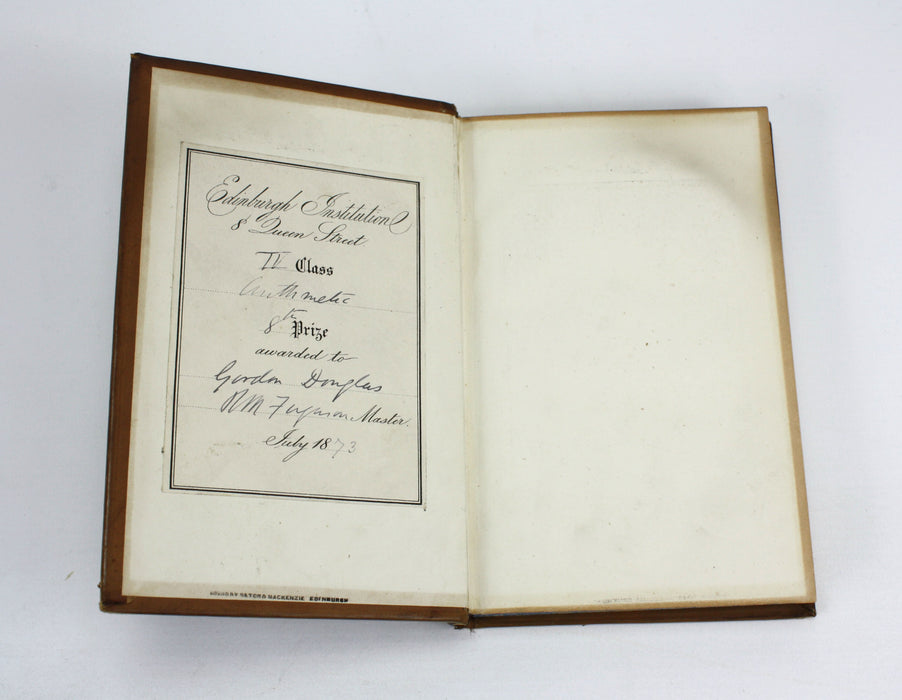 Edinburgh Institution
8 Queen Street
IV Class
Arithmetic
8th Prize
awarded to
Gordon Douglas
R M Ferguson Master.
July 1873
BOUND BY SETON & MACKENZIE EDINBURGH